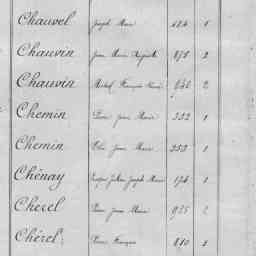 Chauvel Joseph Marie 424 1
Chauvin Jean Marie Auguste 875 2
Chauvin François 646 2
Chemin Pierre Jean Marie 332 1
Chemin Jean Marie 353 1
Chénay Julien Joseph Marie 174 1
Cherel Jean Marie 925 2
Chérel Pierre François 110 1